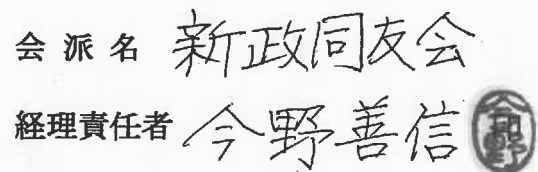 会派名 新政同友会
経理責任者 今野善信 今野